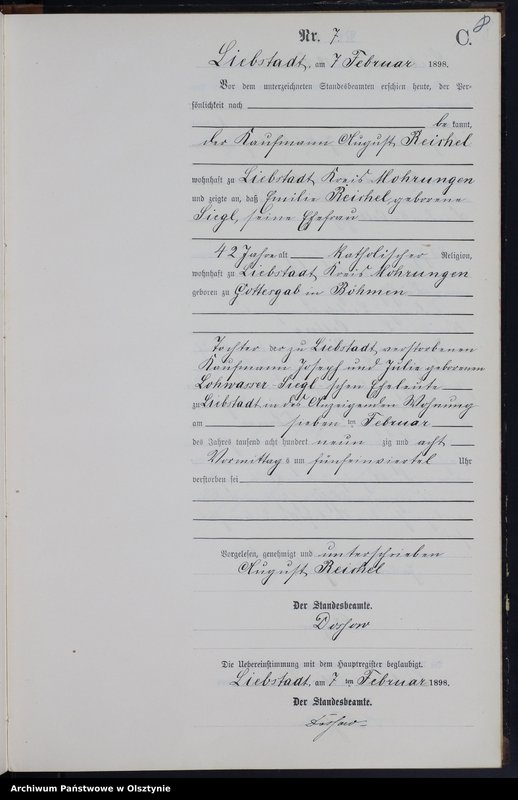 8
Nr. 7. C.
Liebstadt, am 7 Februar 1898.
Vor dem unterzeichneten Standesbeamten erschien heute, der Per-
sönlichkeit nach
be kannt,
der Kaufmann August Reichel
wohnhaft zu Liebstadt, Kreis Mohrungen
und zeigte an, daß Emilie Reichel, geborene
Siegl, seine Ehefrau
42 Jahre alt katholischer Religion,
wohnhaft zu Liebstadt, Kreis Mohrungen
geboren zu Gottesgab in Böhmen
Tochter der zu Liebstadt, verstorbenen
Kaufmann Joseph und Julie geborenen
Lohwasser Siegl'schen Eheleute
zu Liebstadt in des Anzeigenden Wohnung
am sieben ten Februar
des Jahres tausend acht hundert neun zig und acht
Vormittags um fünfeinviertel Uhr
verstorben sei
Vorgelesen, genehmigt und unterschrieben
August Reichel
Der Standesbeamte.
Die Uebereinstimmung mit dem Hauptregister beglaubigt.
Liebstadt, am 7 ten Februar 1898.
Der Standesbeamte.
Archiwum Państwowe w Olsztynie